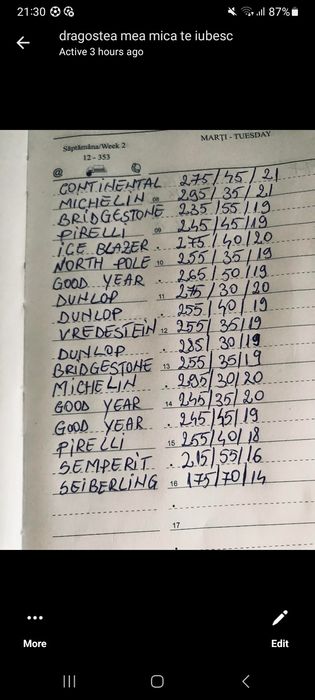 21:30 87%
dragostea mea mica te iubesc
Active 3 hours ago
MARȚI - TUESDAY
Săptămâna/Week 2
12 - 353
@
CONTINENTAL 275/45/21
MICHELIN 08 295/35/21
BRIDGESTONE 235/55/19
PIRELLI 09 245/45/19
ICE BLAZER 275/40/20
NORTH POLE 10 255/35/19
GOOD YEAR 265/50/19
DUNLOP 11 275/30/20
DUNLOP 255/40/19
VREDESTEIN 12 255/35/19
DUNLOP 285/30/19
BRIDGESTONE 13 255/35/19
MICHELIN 295/30/20
GOOD YEAR 14 245/35/20
GOOD YEAR 245/45/19
PIRELLI 15 255/40/18
SEMPERIT 215/55/16
SEIBERLING 16 175/70/14
17
More Edit